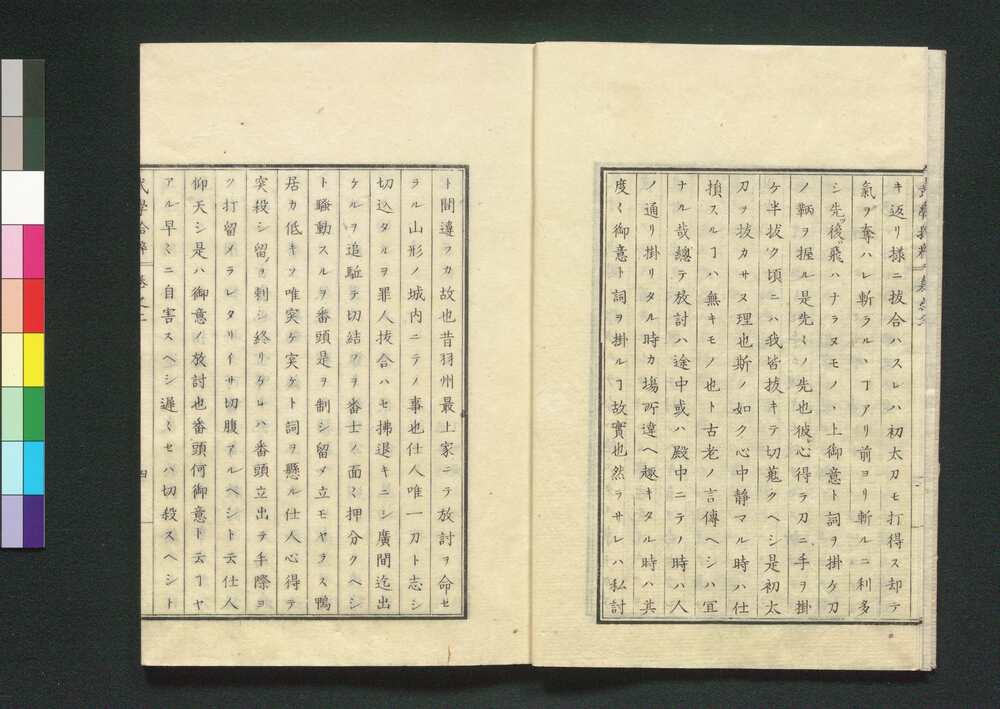 キ返リ様ニ抜合ハスレハ初太刀モ打得ス却テ
氣ヲ奪ハレ斬ラルヽヿアリ前ヨリ斬ルニ利多
シ先後飛ハナラヌモノヽ上御意ト詞ヲ掛ケ刀
ノ鞆ヲ握ル是先々ノ先也彼心得ラ刀ニ手ヲ掛
ケ半抜ク頃ニハ我皆抜キテ切蒐クヘシ是初太
刀ヲ抜カサヌ理也斯ノ如ク心中静マル時ハ仕
損スルヿハ無キモノ也ト古老ノ言傳ヘシハ宜
ナル哉總テ放討ハ途中或ハ殿中ニテノ時ハ人
ノ通リ掛リタル時カ場所違ヘ趣キタル時ハ其
度々御意ト詞ヲ掛ルヿ故實也然ラサレハ私討
ト間違フカ故也昔羽州最上家ニテ放討ヲ命セ
ラル山形ノ城内ニテノ事也仕人唯一刀ト志シ
切込タルヲ罪人抜合ハセ拂退キニシ廣間迄出
ケルヲ追駈テ切結フヲ番士ノ面々押分クヘシ
ト騒動スルヲ番頭是ヲ制シ留メ立モヤラス鴨
居カ低キソ唯突ケ突ケト詞ヲ懸ル仕人心得テ
突殺シ留ヲ刺シ終リケレハ番頭立出テ手際ヨ
ツ打留メラレタリイサ切腹アルヘシト云仕人
仰天シ是ハ御意ノ放討也番頭何御意ト云ヿヤ
アル早々ニ自害スヘシ遲クセバ切殺スヘシト
四